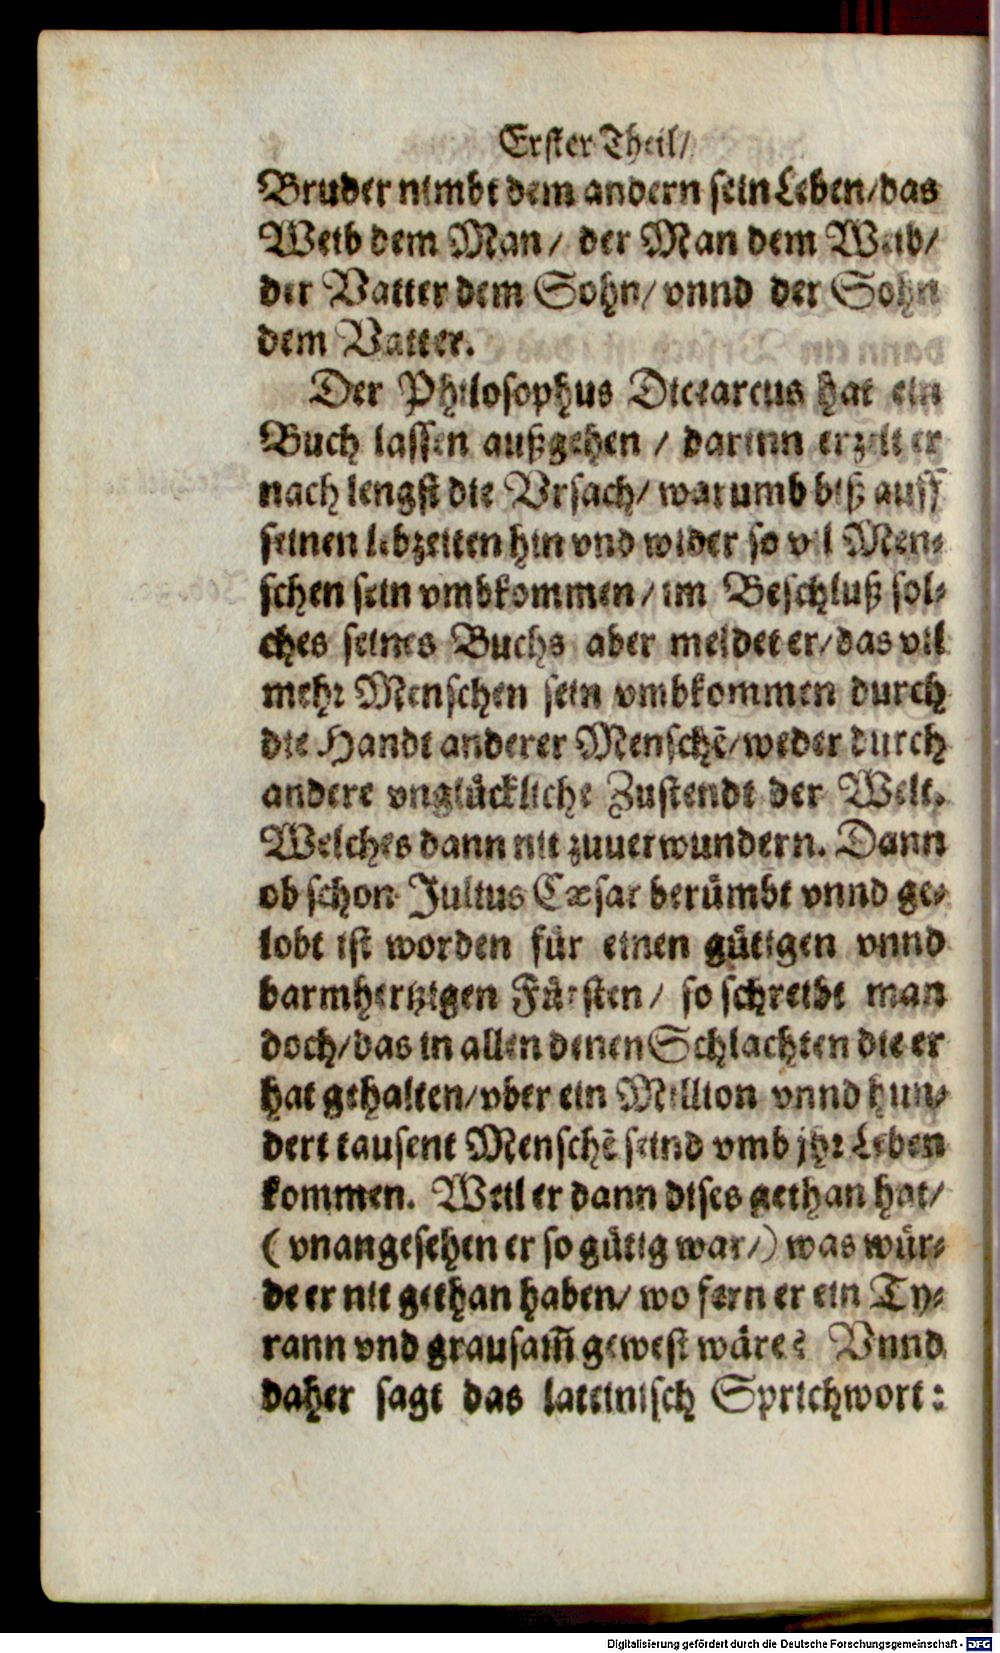 Erster Theil/
Bruder nimbt dem andern sein Leben/das
Weib dem Man/ der Man dem Weib/
der Vatter dem Sohn/ vnnd der Sohn
dem Vatter.
Der Philosophus Dicearcus hat ein
Buch lassen außgehen / darinn erzelt er
nach lengst die Vrsach/ warumb biß auff
seinen lebzeiten hin vnd wider so vil Men-
schen sein vmbkommen/ im Beschluß sol-
ches seines Buchs aber meldet er/das vil
mehr Menschen sein vmbkommen durch
die Handt anderer Menschē/weder durch
andere vnglückliche Zustendt der Welt.
Welches dann nit zuuerwundern. Dann
ob schon Julius Cæsar berümbt vnnd ge-
lobt ist worden für einen gütigen vnnd
barmhertzigen Fürsten/ so schreibt man
doch/das in allen denen Schlachten die er
hat gehalten/vber ein Million vnnd hun-
dert tausent Menschē seind vmb jhr Leben
kommen. Weil er dann dises gethan hat/
(vnangesehen er so gütig war/) was wür-
de er nit gethan haben/ wo fern er ein Ty-
rann vnd grausam̄ gewest wäre? Vnnd
daher sagt das lateinisch Sprichwort:
Digitalisierung gefördert durch die Deutsche Forschungsgemeinschaft - DFG